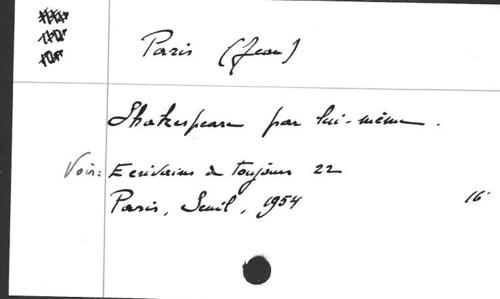 Paris (Jean)
Shakespeare par lui-même.
Voir: Ecrivains de toujours 22
Paris, Seuil, 1954 16